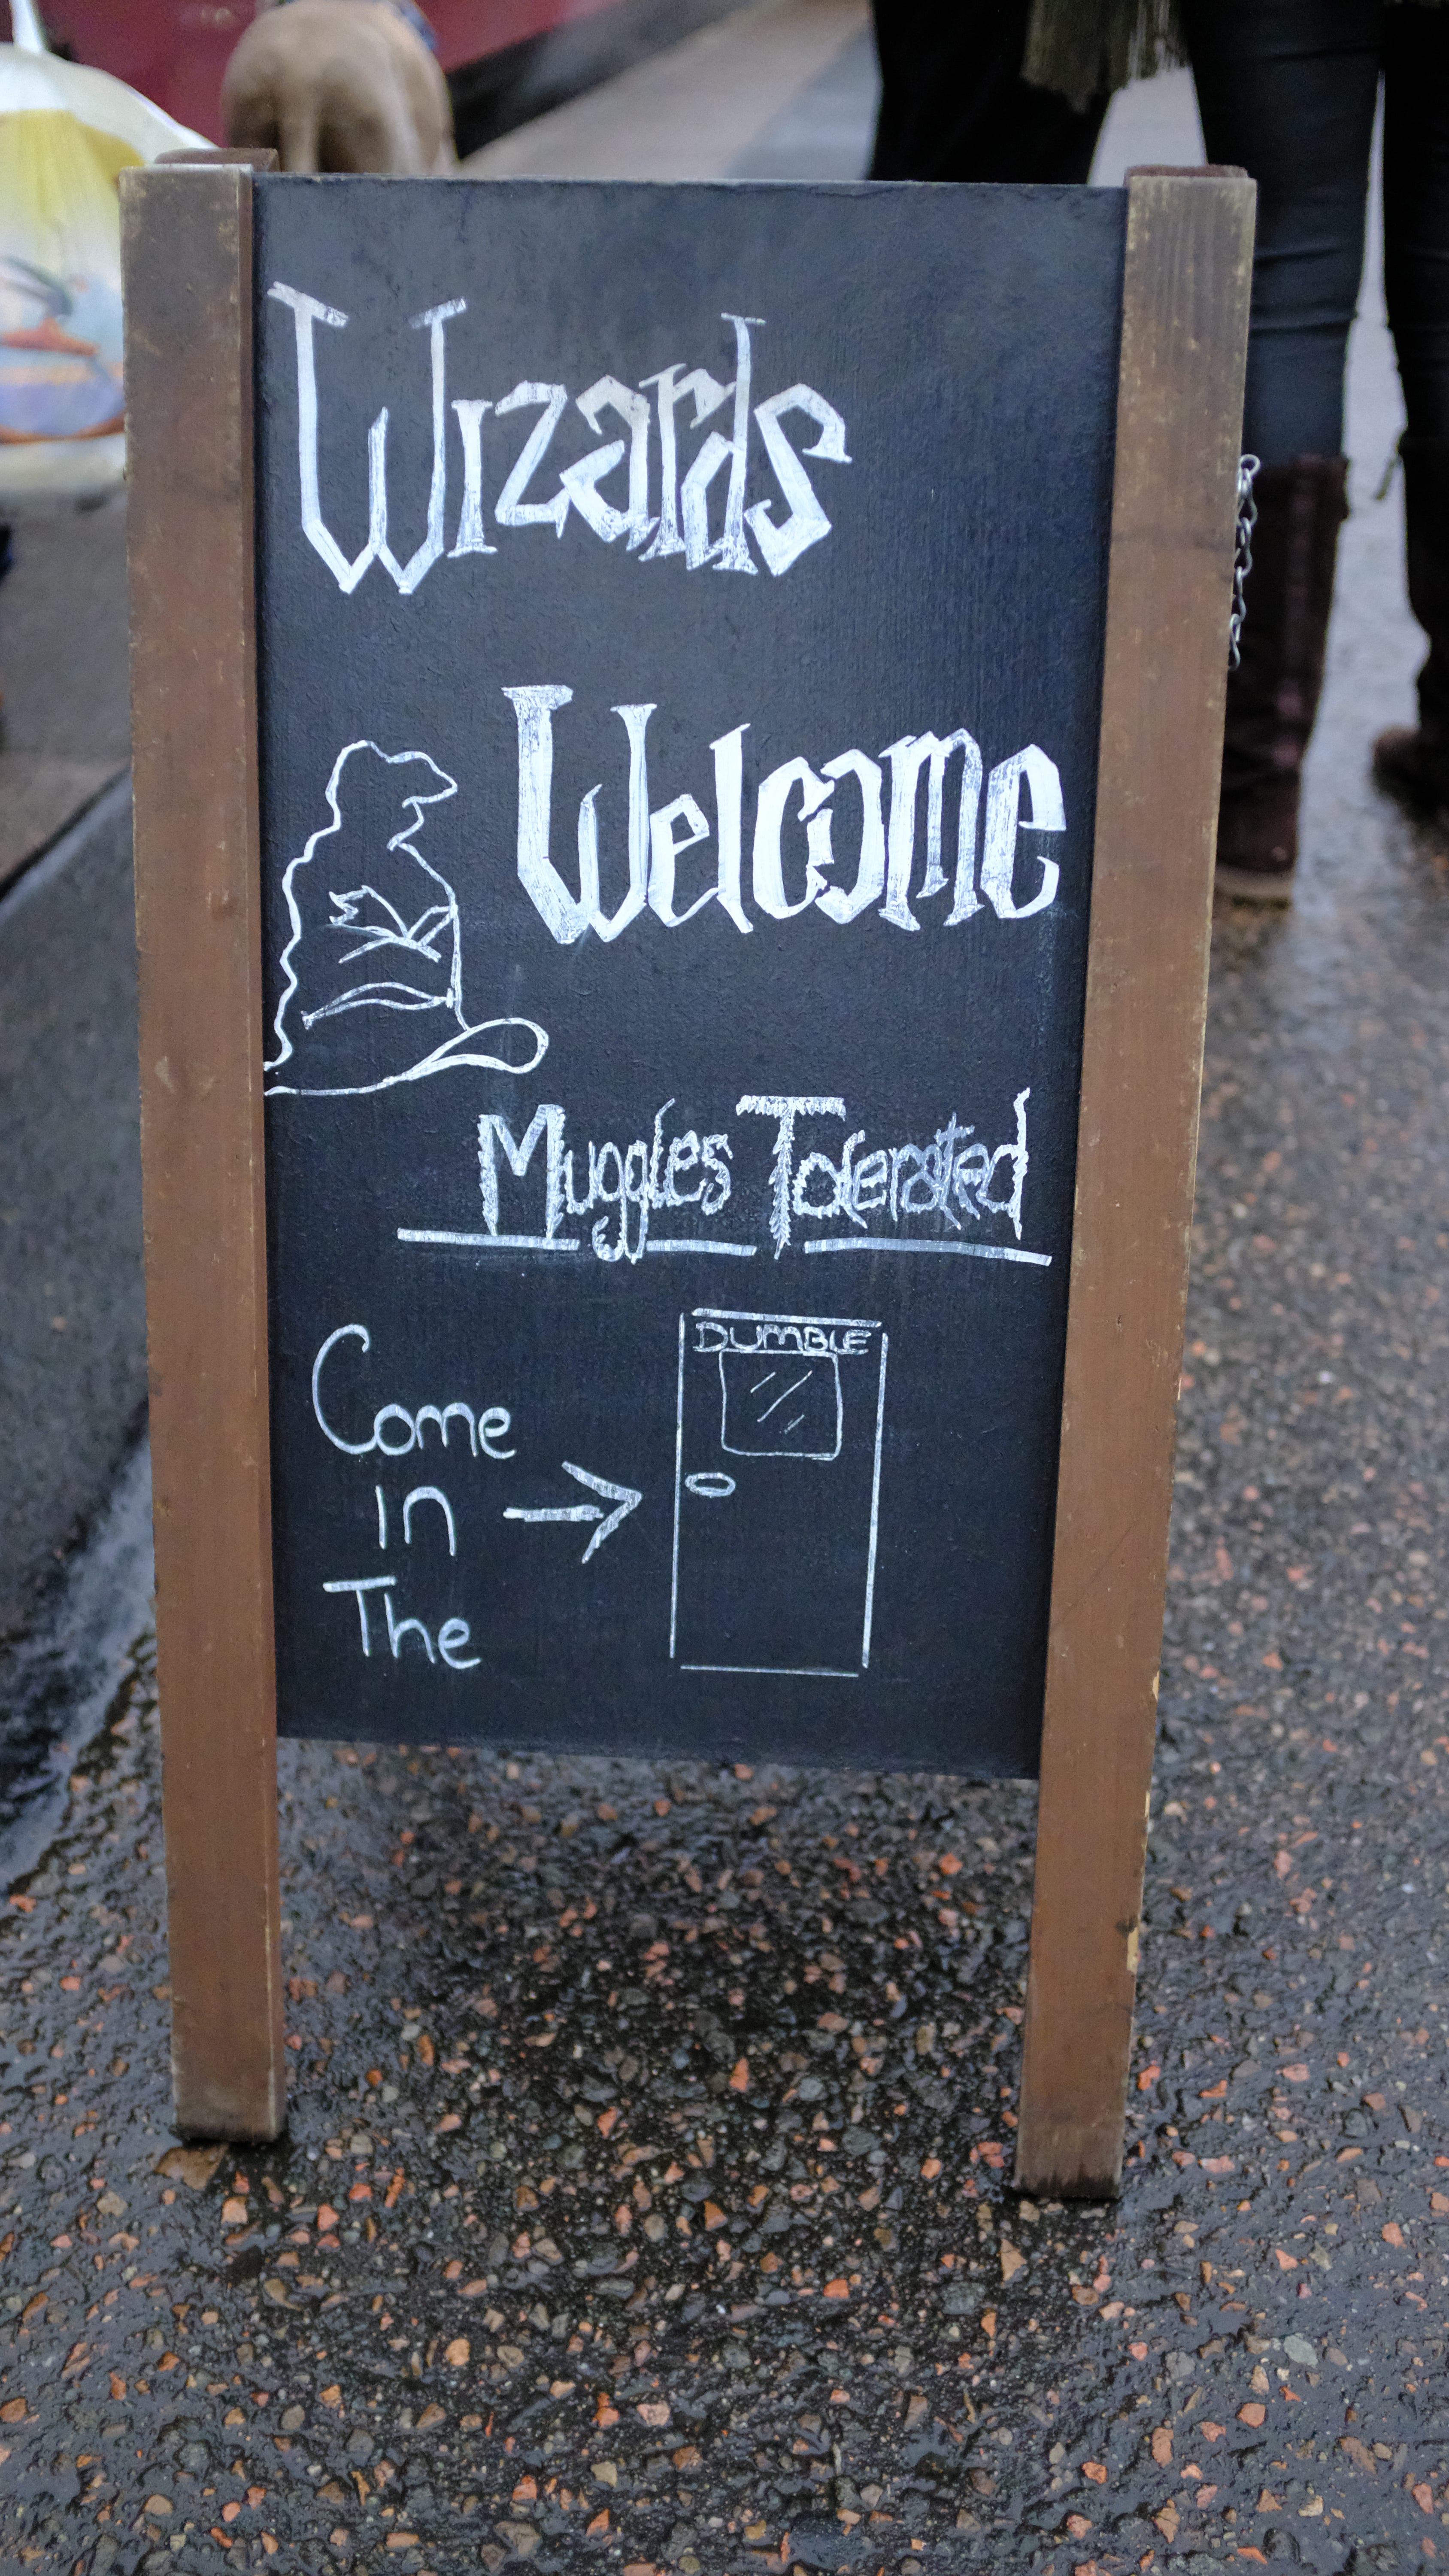 Wizards
Welcome
Muggles Tolerated
Come
in
The
DUMBLE